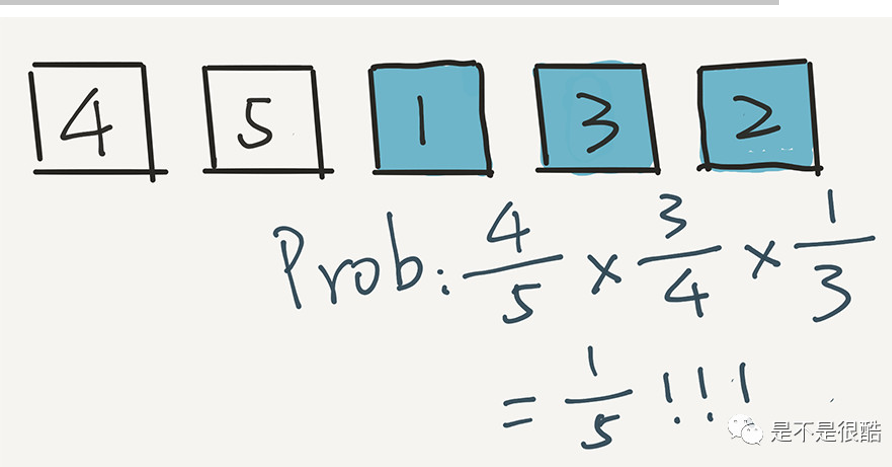 4 5 1 3 2
Prob: 4/5 × 3/4 × 1/3
= 1/5 !!!
是不是很酷